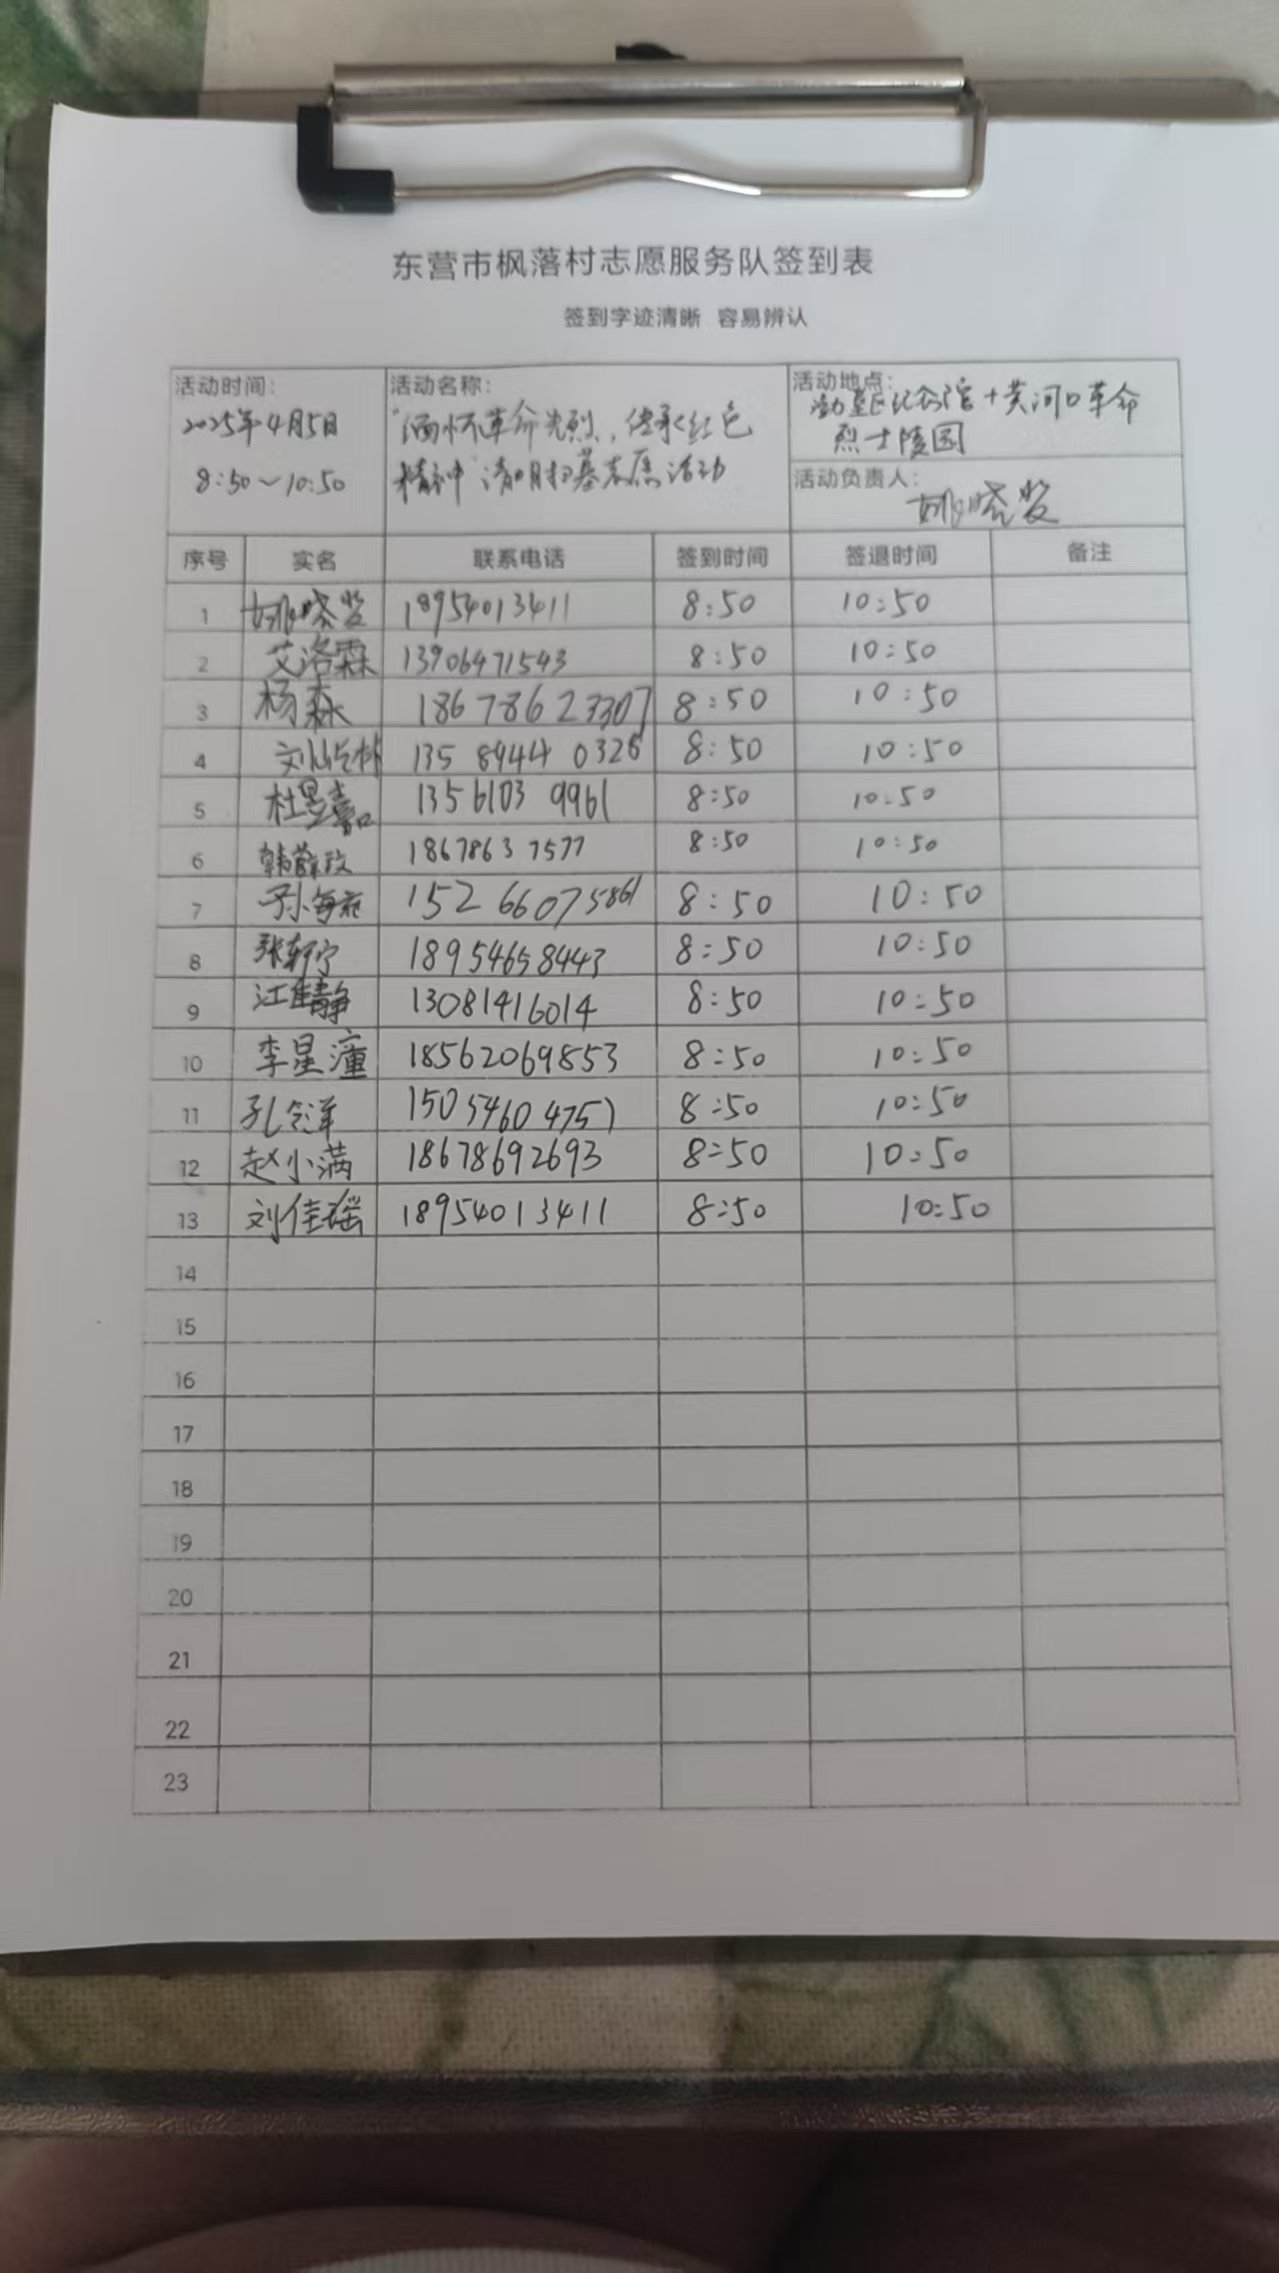 东营市枫落村志愿服务队签到表
签到字迹清晰 容易辨认
活动时间：
2025年4月5日
8:50～10:50
活动名称：
“缅怀革命先烈，传承红色
精神”清明扫墓志愿活动
活动地点：
渤垦区纪念馆+黄河口革命
烈士陵园
活动负责人：
姚晓
序号 实名 联系电话 签到时间 签退时间 备注
1 姚晓 18954013411 8:50 10:50
2 艾洛霖 13906471543 8:50 10:50
3 杨森 18678623307 8:50 10:50
4 刘 135 8944 0326 8:50 10:50
5 杜昱嘉 1356103 9961 8:50 10:50
6 韩 1867863 7577 8:50 10:50
7 孙海 152 66075861 8:50 10:50
8 张轩宁 18954658443 8:50 10:50
9 江佳静 13081416014 8:50 10:50
10 李星潼 18562069853 8:50 10:50
11 孔令洋 15054604757 8:50 10:50
12 赵小满 18678692693 8:50 10:50
13 刘佳瑶 18954013411 8:50 10:50
14
15
16
17
18
19
20
21
22
23